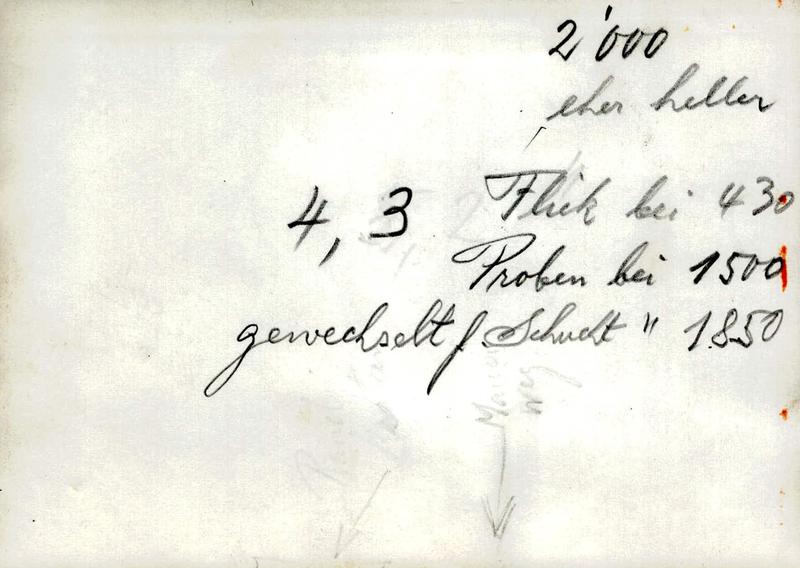 2'000
eher heller
4,3 Flick bei 430
Proben bei 1500
gewechselt f. Schucht " 1850